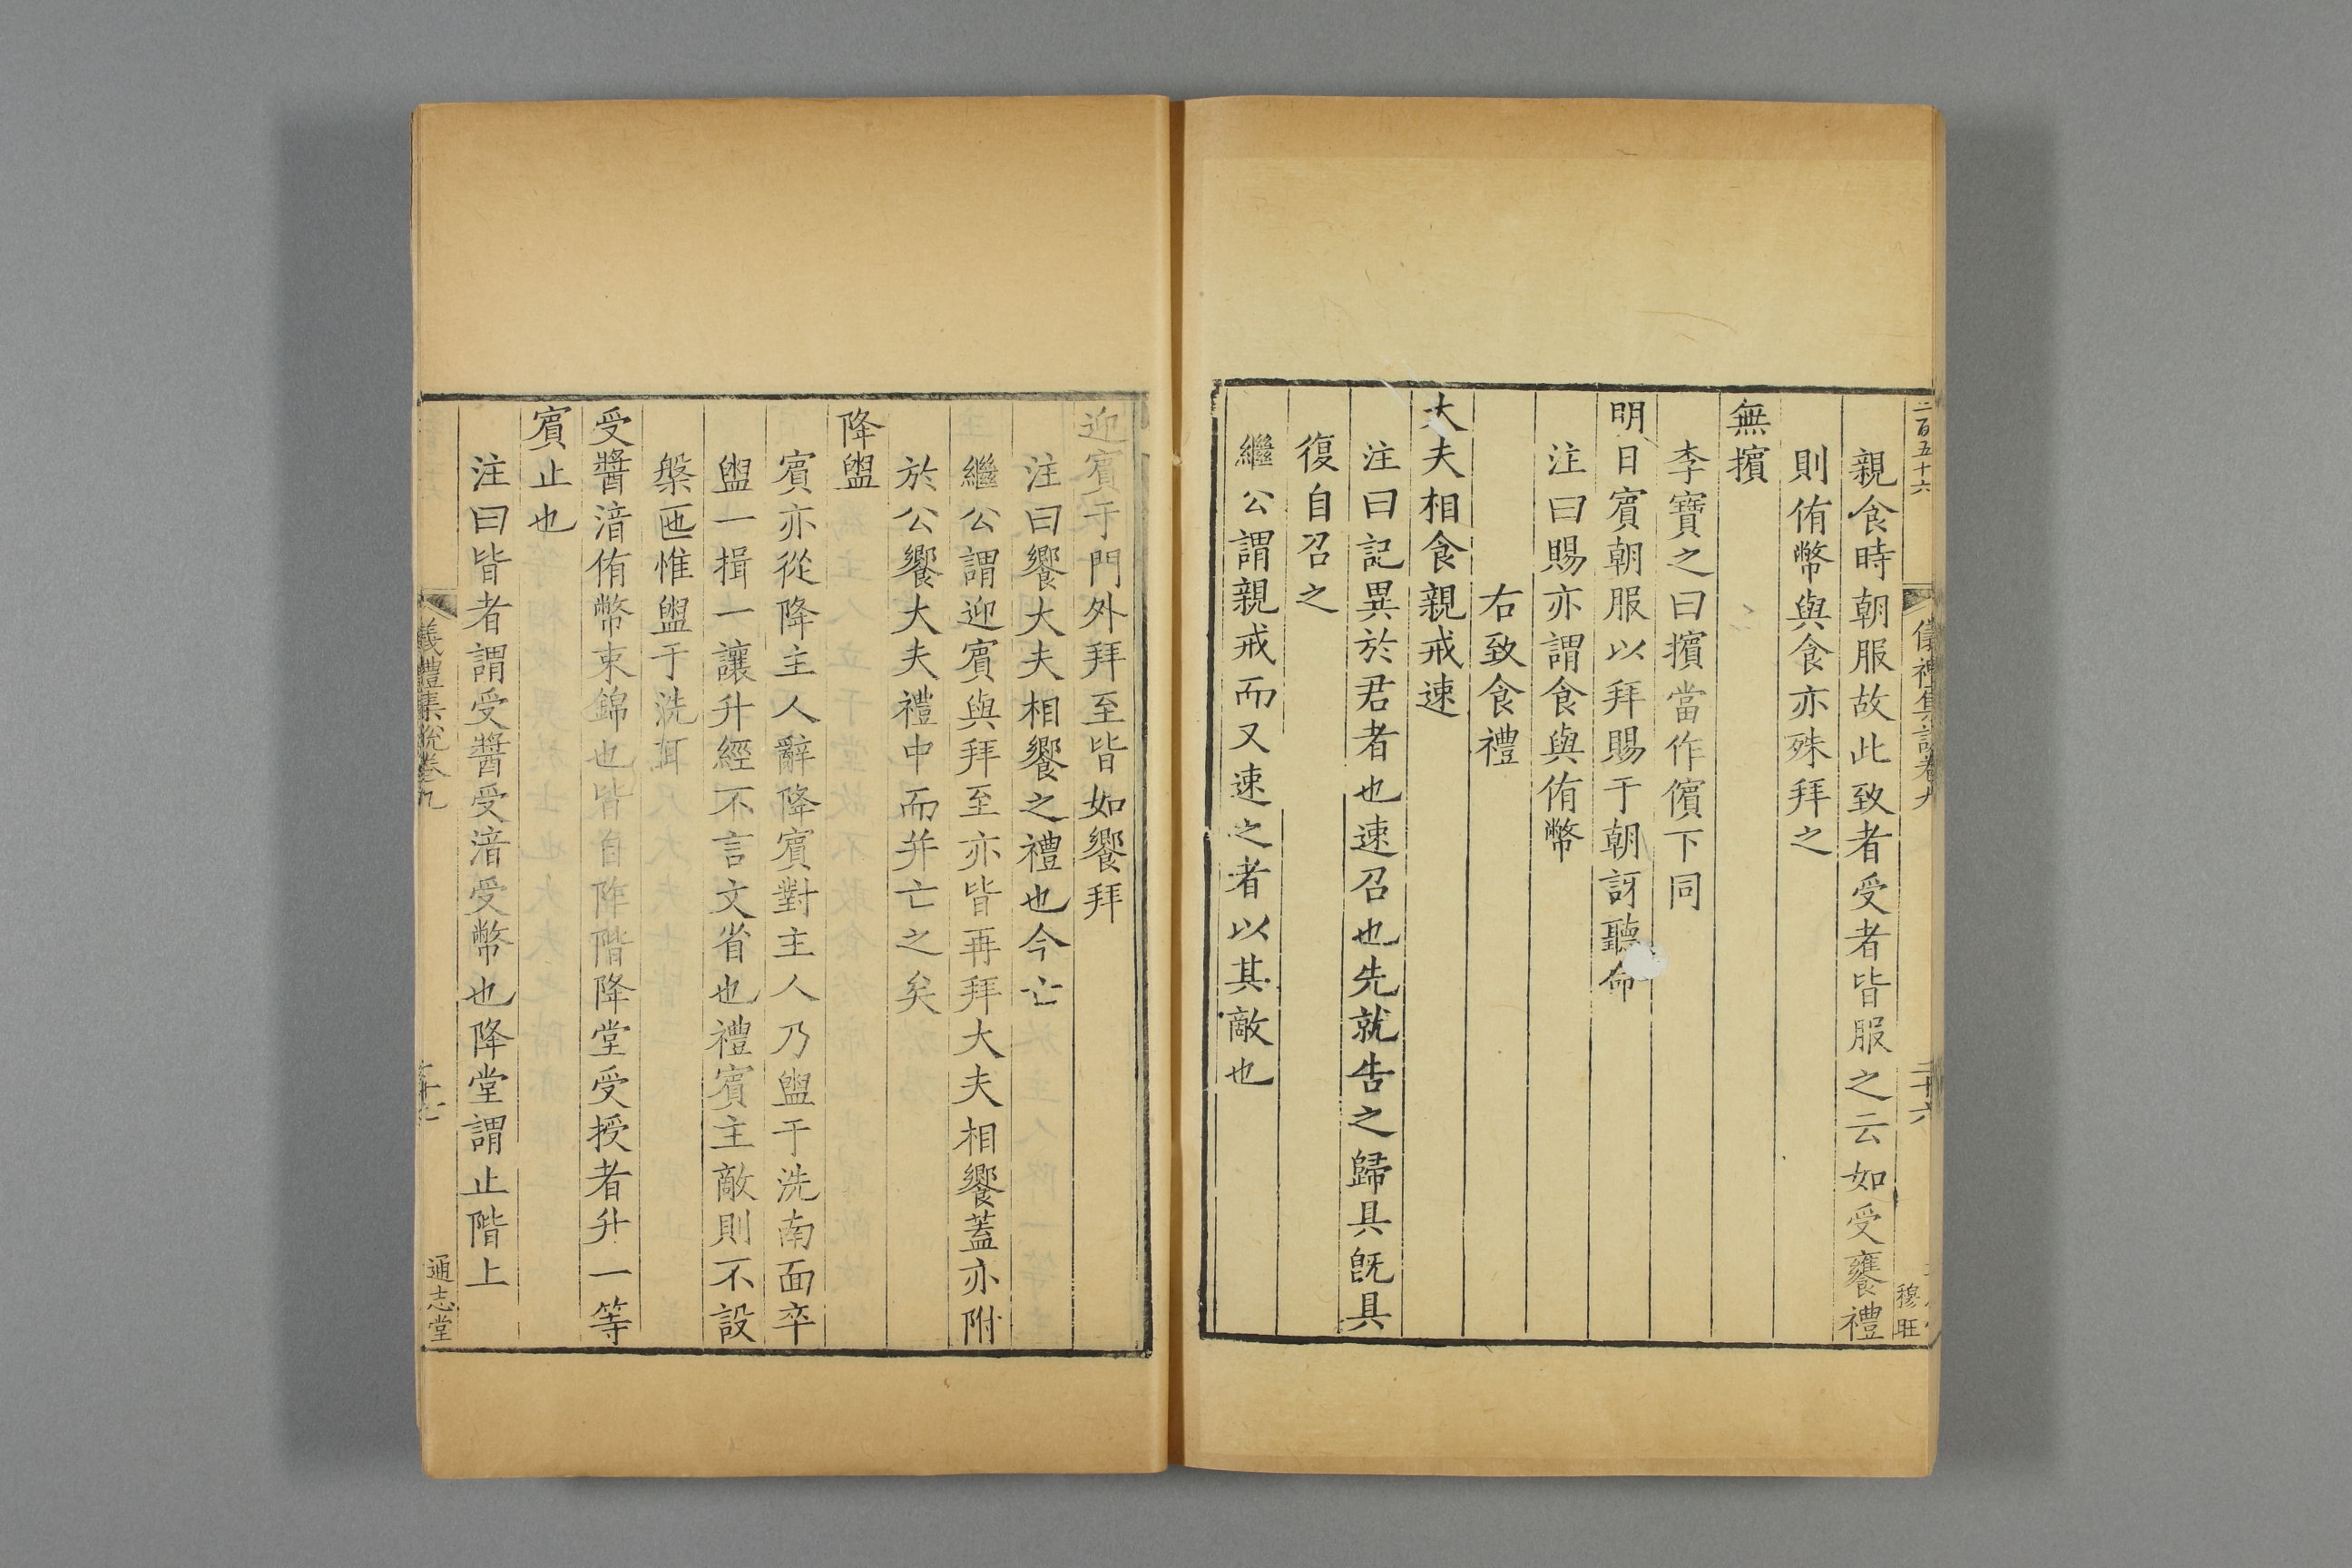 二百五十六
儀禮集說卷九
二十六
穆旺
親食時朝服故此致者受者皆服之云如受饔禮
則侑幣與食亦殊拜之
無擯
李寶之曰擯當作儐下同
明日賓朝服以拜賜于朝訝聽命
注曰賜亦謂食與侑幣
右致食禮
大夫相食親戒速
注曰記異於君者也速召也先就告之歸具旣具
復自召之
繼公謂親戒而又速之者以其敵也
迎賓于門外拜至皆如饗拜
注曰饗大夫相饗之禮也今亡
繼公謂迎賓與拜至亦皆再拜大夫相饗蓋亦附
於公饗大夫禮中而并亡之矣
降盥
賓亦從降主人辭降賓對主人乃盥于洗南面卒
盥一揖一讓升經不言文省也禮賓主敵則不設
槃匜惟盥于洗耳
受醬湆侑幣束錦也皆自阼階降堂受授者升一等
賓止也
注曰皆者謂受醬受湆受幣也降堂謂止階上
儀禮集說卷九
通志堂